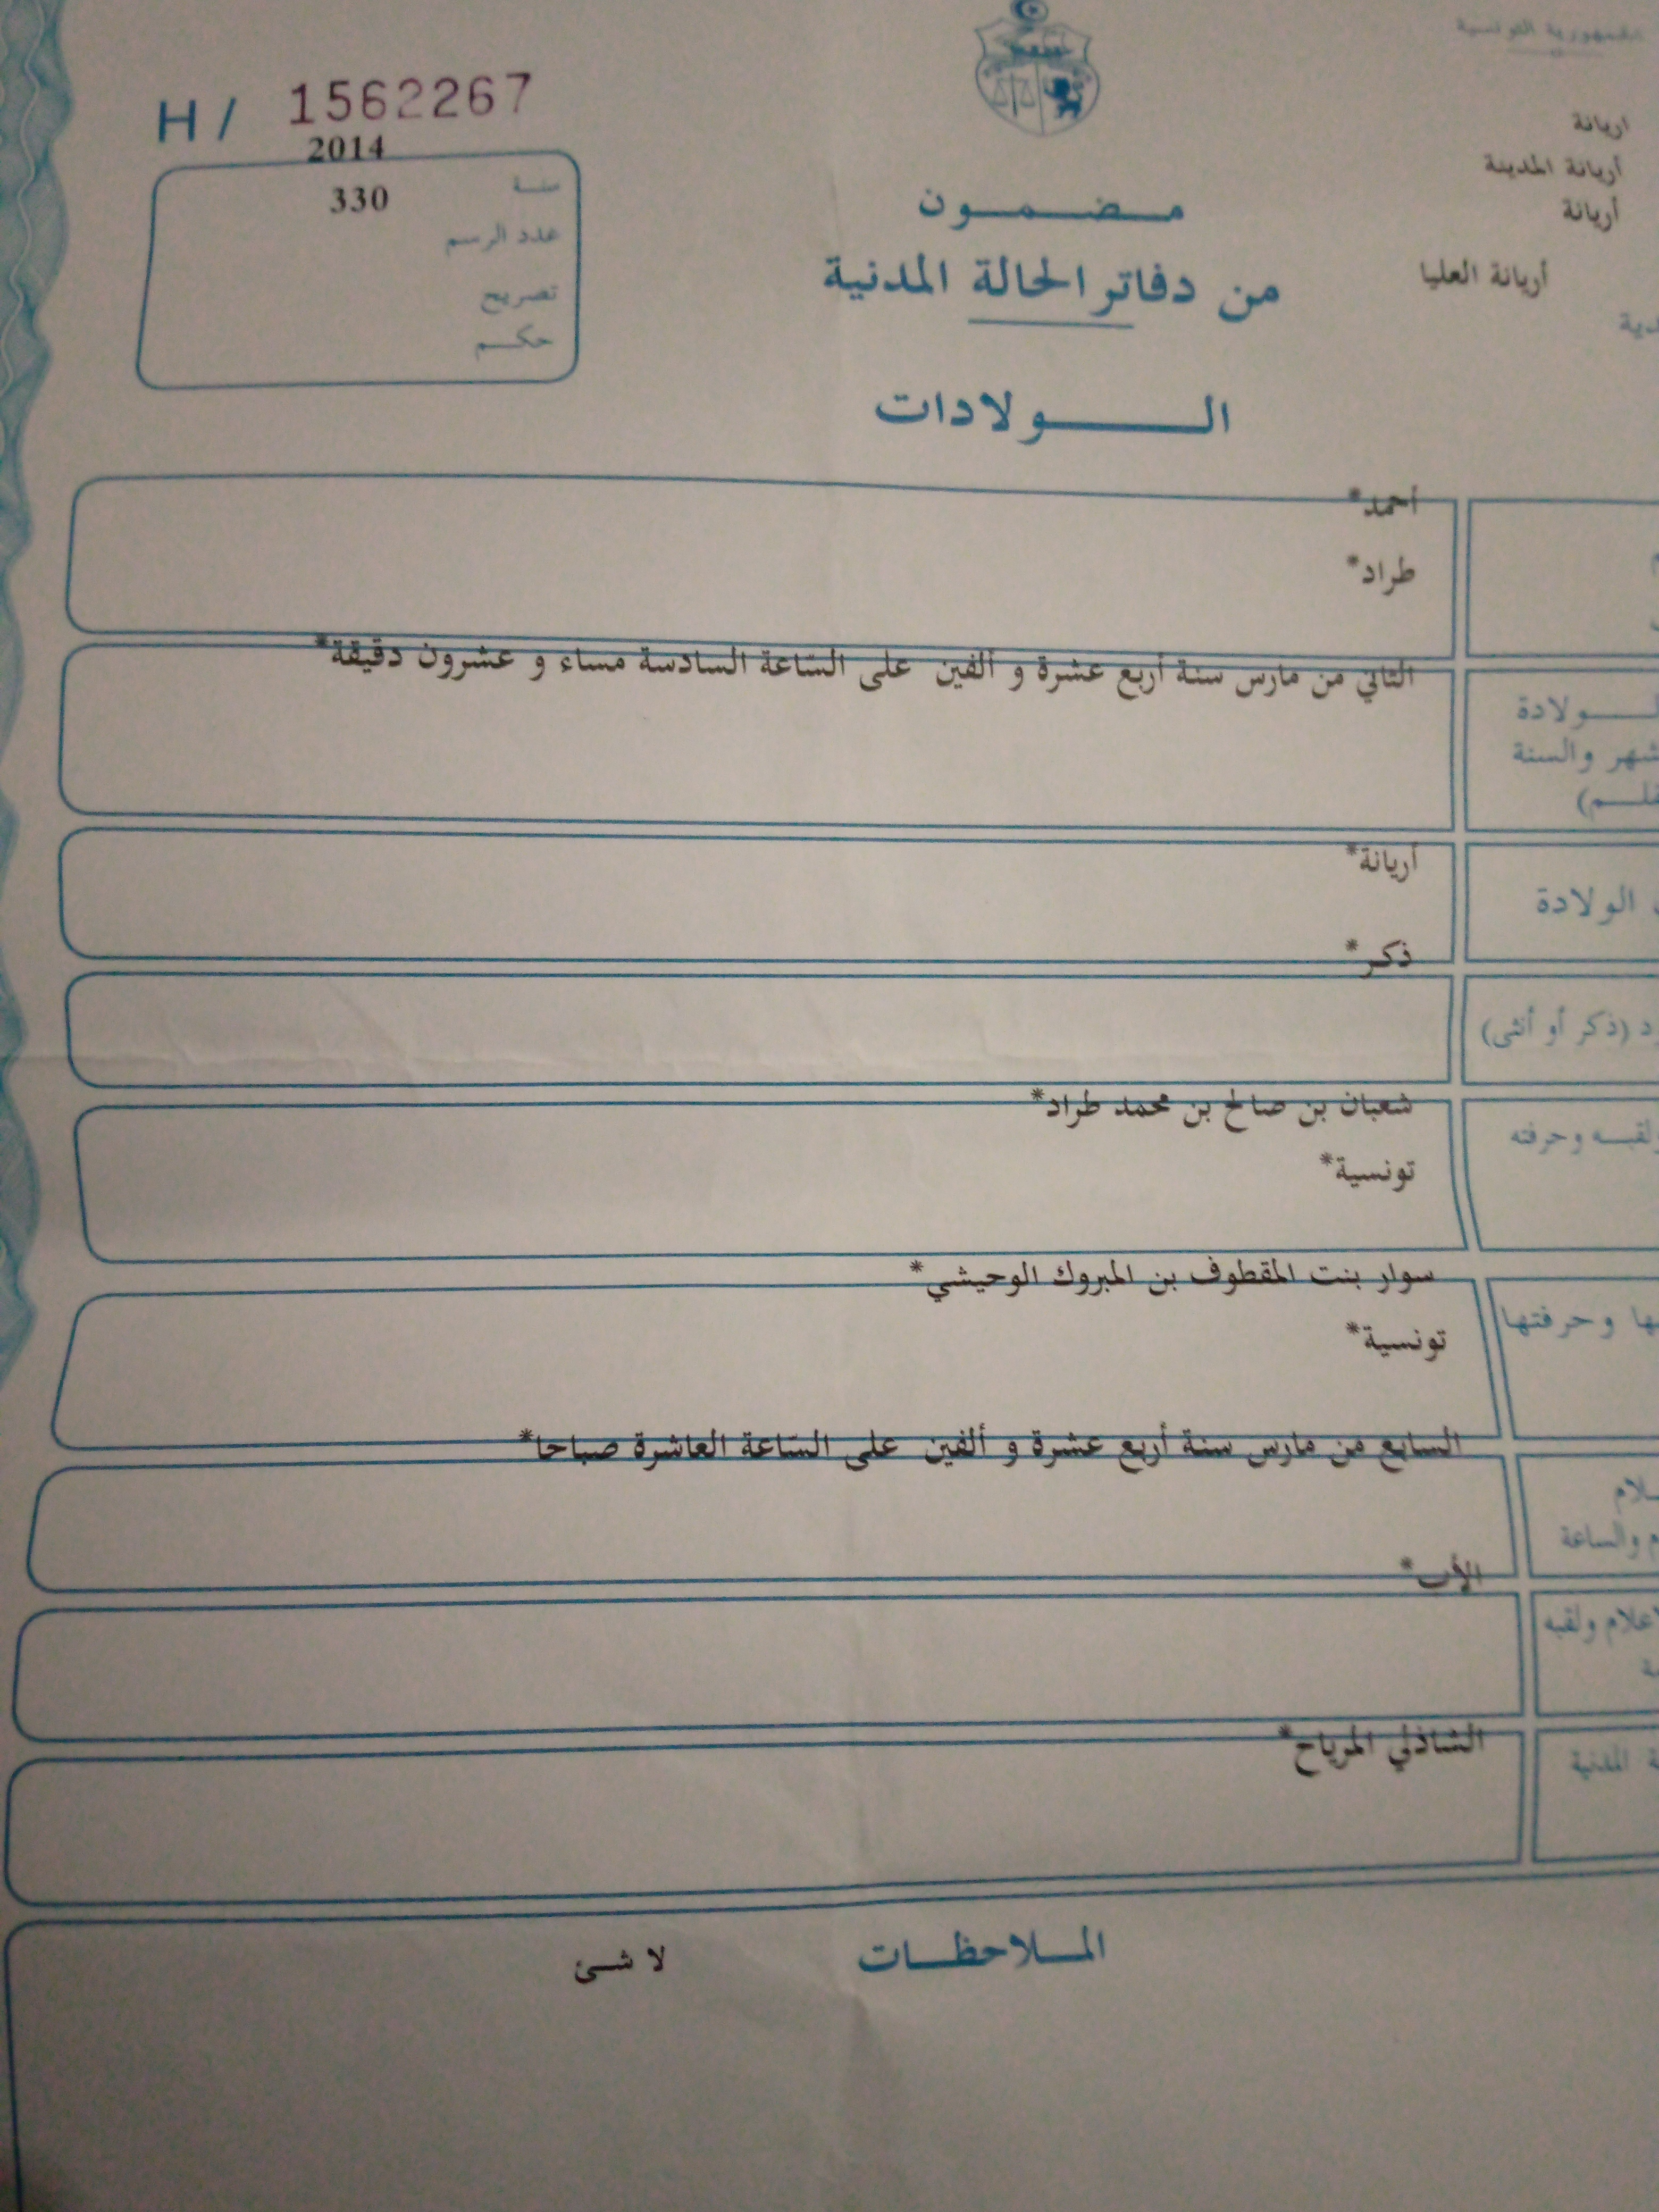 الجمهورية التونسية
اريانة
أريانة المدينة
أريانة
أريانة العليا
H / 1562267
2014
سنة
330
عدد الرسم
تصريح
حكم
مضمون
من دفاتر الحالة المدنية
الولادات
أحمد*
طراد*
الثاني من مارس سنة أربع عشرة و ألفين على الساعة السادسة مساء و عشرون دقيقة*
الولادة
والسنة
أريانة*
الولادة
ذكر*
(ذكر أو أنثى)
شعبان بن صالح بن محمد طراد*
وحرفته
تونسية*
سوار بنت المقطوف بن المبروك الوحيشي*
وحرفتها
تونسية*
السابع من مارس سنة أربع عشرة و ألفين على الساعة العاشرة صباحا*
والساعة
الأب*
ولقبه
الشاذلي المرياح*
المدنية
الملاحظات
لا شئ